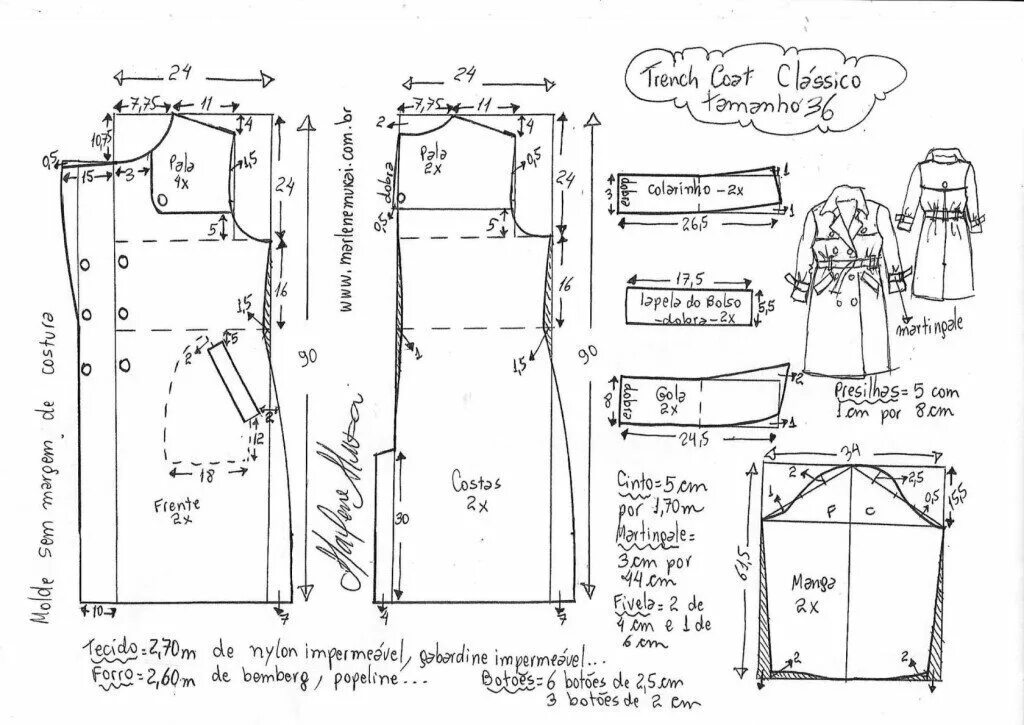 Trench Coat Clássico
tamanho 36
24
7,75
11
10,75
4
0,5
15
3
Pala
4x
1,5
5
24
16
1,5
5
2
2
12
18
90
Frente
2x
10
7
Molde sem margem de costura
www.marlenemukai.com.br
Marlene Mukai
24
7,75
11
2
4
Pala
2x
0,5
dobra
0,5
5
24
16
1
1,5
90
Costas
2x
30
4
7
1
3
dobra
colarinho -2x
1
26,5
17,5
lapela do Bolso
-dobra-2x
5,5
2
8
dobra
Gola
2x
1
24,5
martingale
Presilhas= 5 com
1 cm por 8 cm
Cinto=5 cm
por 1,70m
Martingale=
3 cm por
44 cm
Fivela= 2 de
4 cm e 1 de
6 cm
34
2
2,5
1
0,5
15,5
F
C
61,5
Manga
2x
2
2
Tecido=2,70m de nylon impermeável, gabardine impermeável...
Forro=2,60m de bemberg, popeline...
Botões= 6 botões de 2,5 cm
3 botões de 2 cm